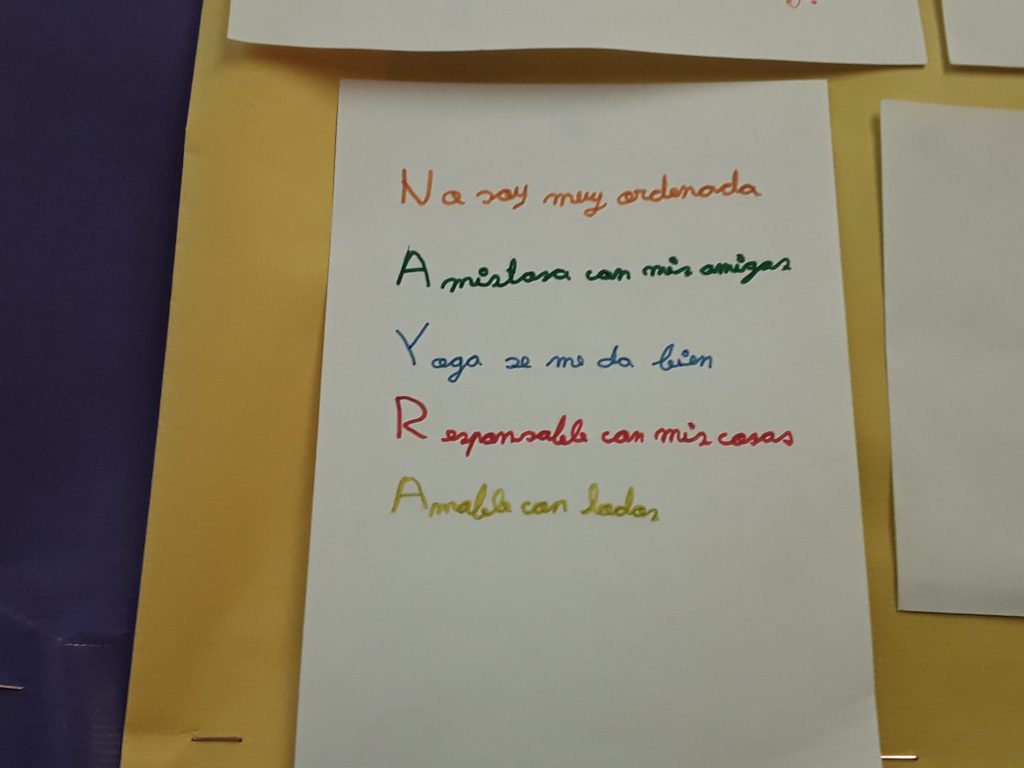 No soy muy ordenada
Amistosa con mis amigas
Yoga se me da bien
Responsable con mis cosas
Amable con todos